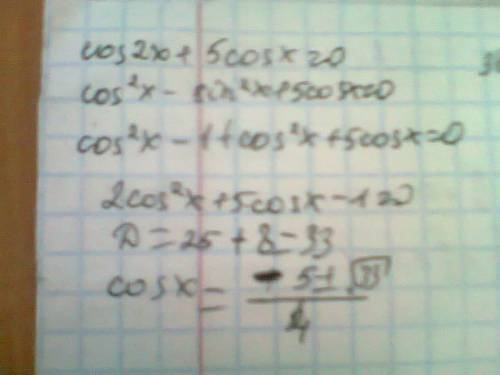 cos2x + 5cosx = 0
cos²x - sin²x + 5cosx = 0
cos²x - 1 + cos²x + 5cosx = 0
2cos²x + 5cosx - 1 = 0
D = 25 + 8 = 33
cosx = (-5 ± √33) / 4